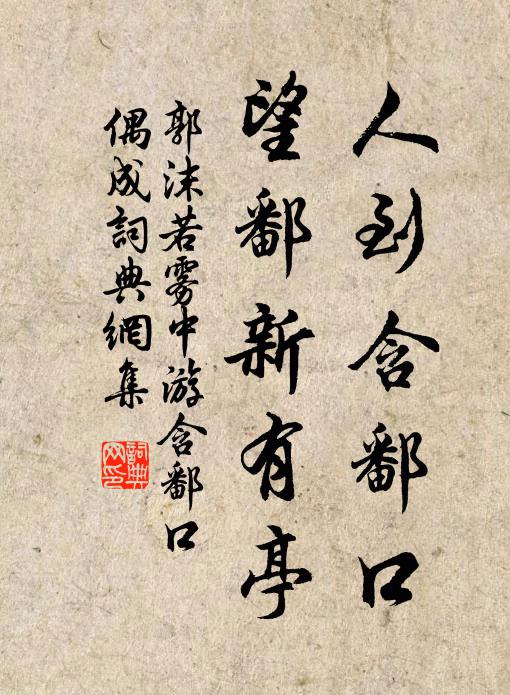 人到含鄱口
望鄱新有亭
郭沫若雾中游含鄱口
偶成詞典網集
詞典网印